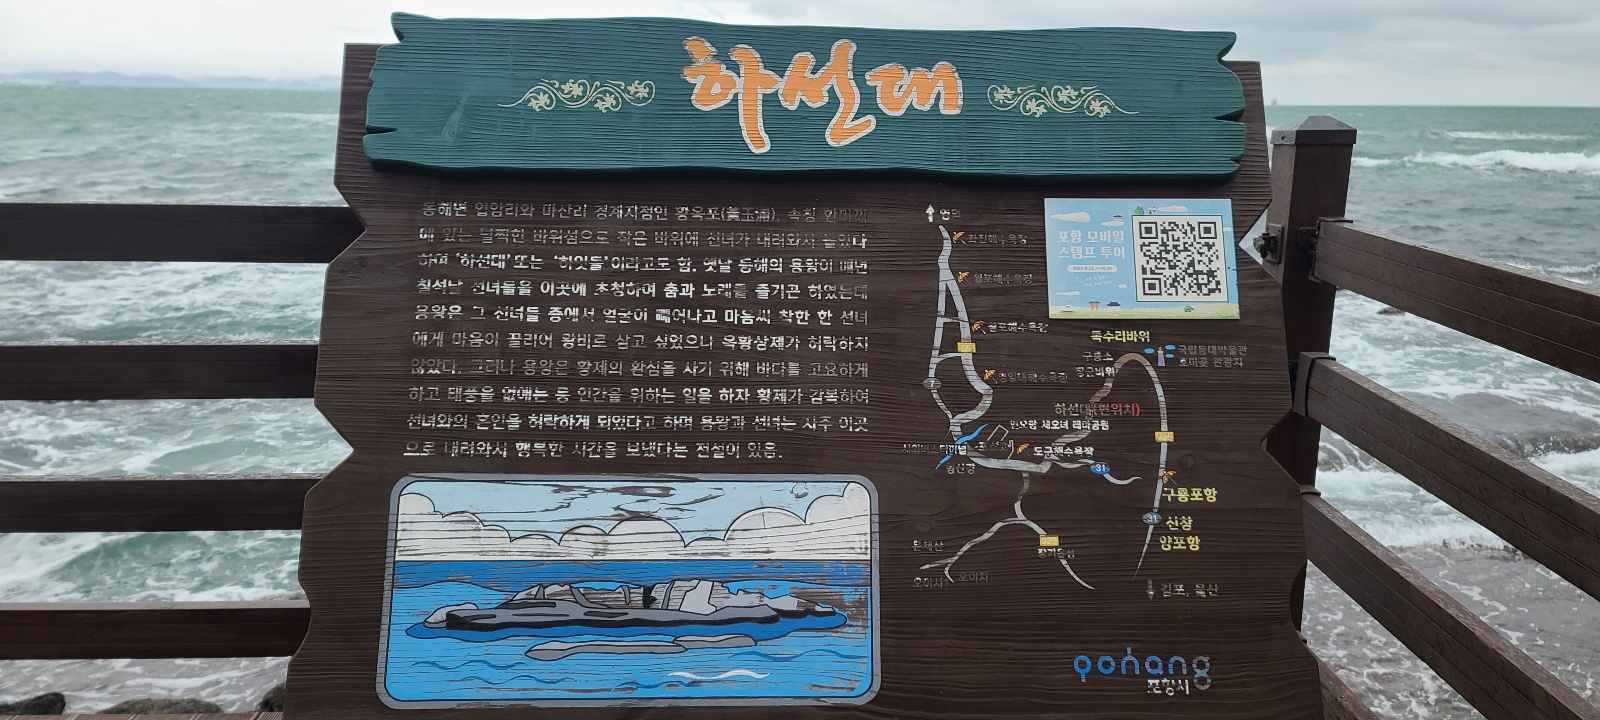 하선대
동해면 입암리와 마산리 경계지점인 황옥포(黃玉浦), 속칭
에 있는 널찍한 바위섬으로 작은 바위에 선녀가 내려와서 놀았다
하여 '하선대' 또는 '하잇돌'이라고도 함. 옛날 동해의 용왕이 매년
칠석날 선녀들을 이곳에 초청하여 춤과 노래를 즐기곤 하였는데
용왕은 그 선녀들 중에서 얼굴이 빼어나고 마음씨 착한 한 선녀
에게 마음이 끌리어 왕비로 삼고 싶었으나 옥황상제가 허락하지
않았다. 그러나 용왕은 황제의 환심을 사기 위해 바다를 고요하게
하고 태풍을 없애는 등 인간을 위하는 일을 하자 황제가 감복하여
선녀와의 혼인을 허락하게 되었다고 하며 용왕과 선녀는 자주 이곳
으로 내려와서 행복한 시간을 보냈다는 전설이 있음.
포항 모바일
스탬프 투어
영덕
화진해수욕장
월포해수욕장
칠포해수욕장
영일대해수욕장
7
독수리바위
구룡소
장군바위
국립등대박물관
호미곶 관광지
하선대(현위치)
연오랑 세오녀 테마공원
도구해수욕장
형산강
31
구룡포항
31
신창
양포항
929
장기읍성
운제산
오어사
오어지
감포, 울산
pohang
포항시